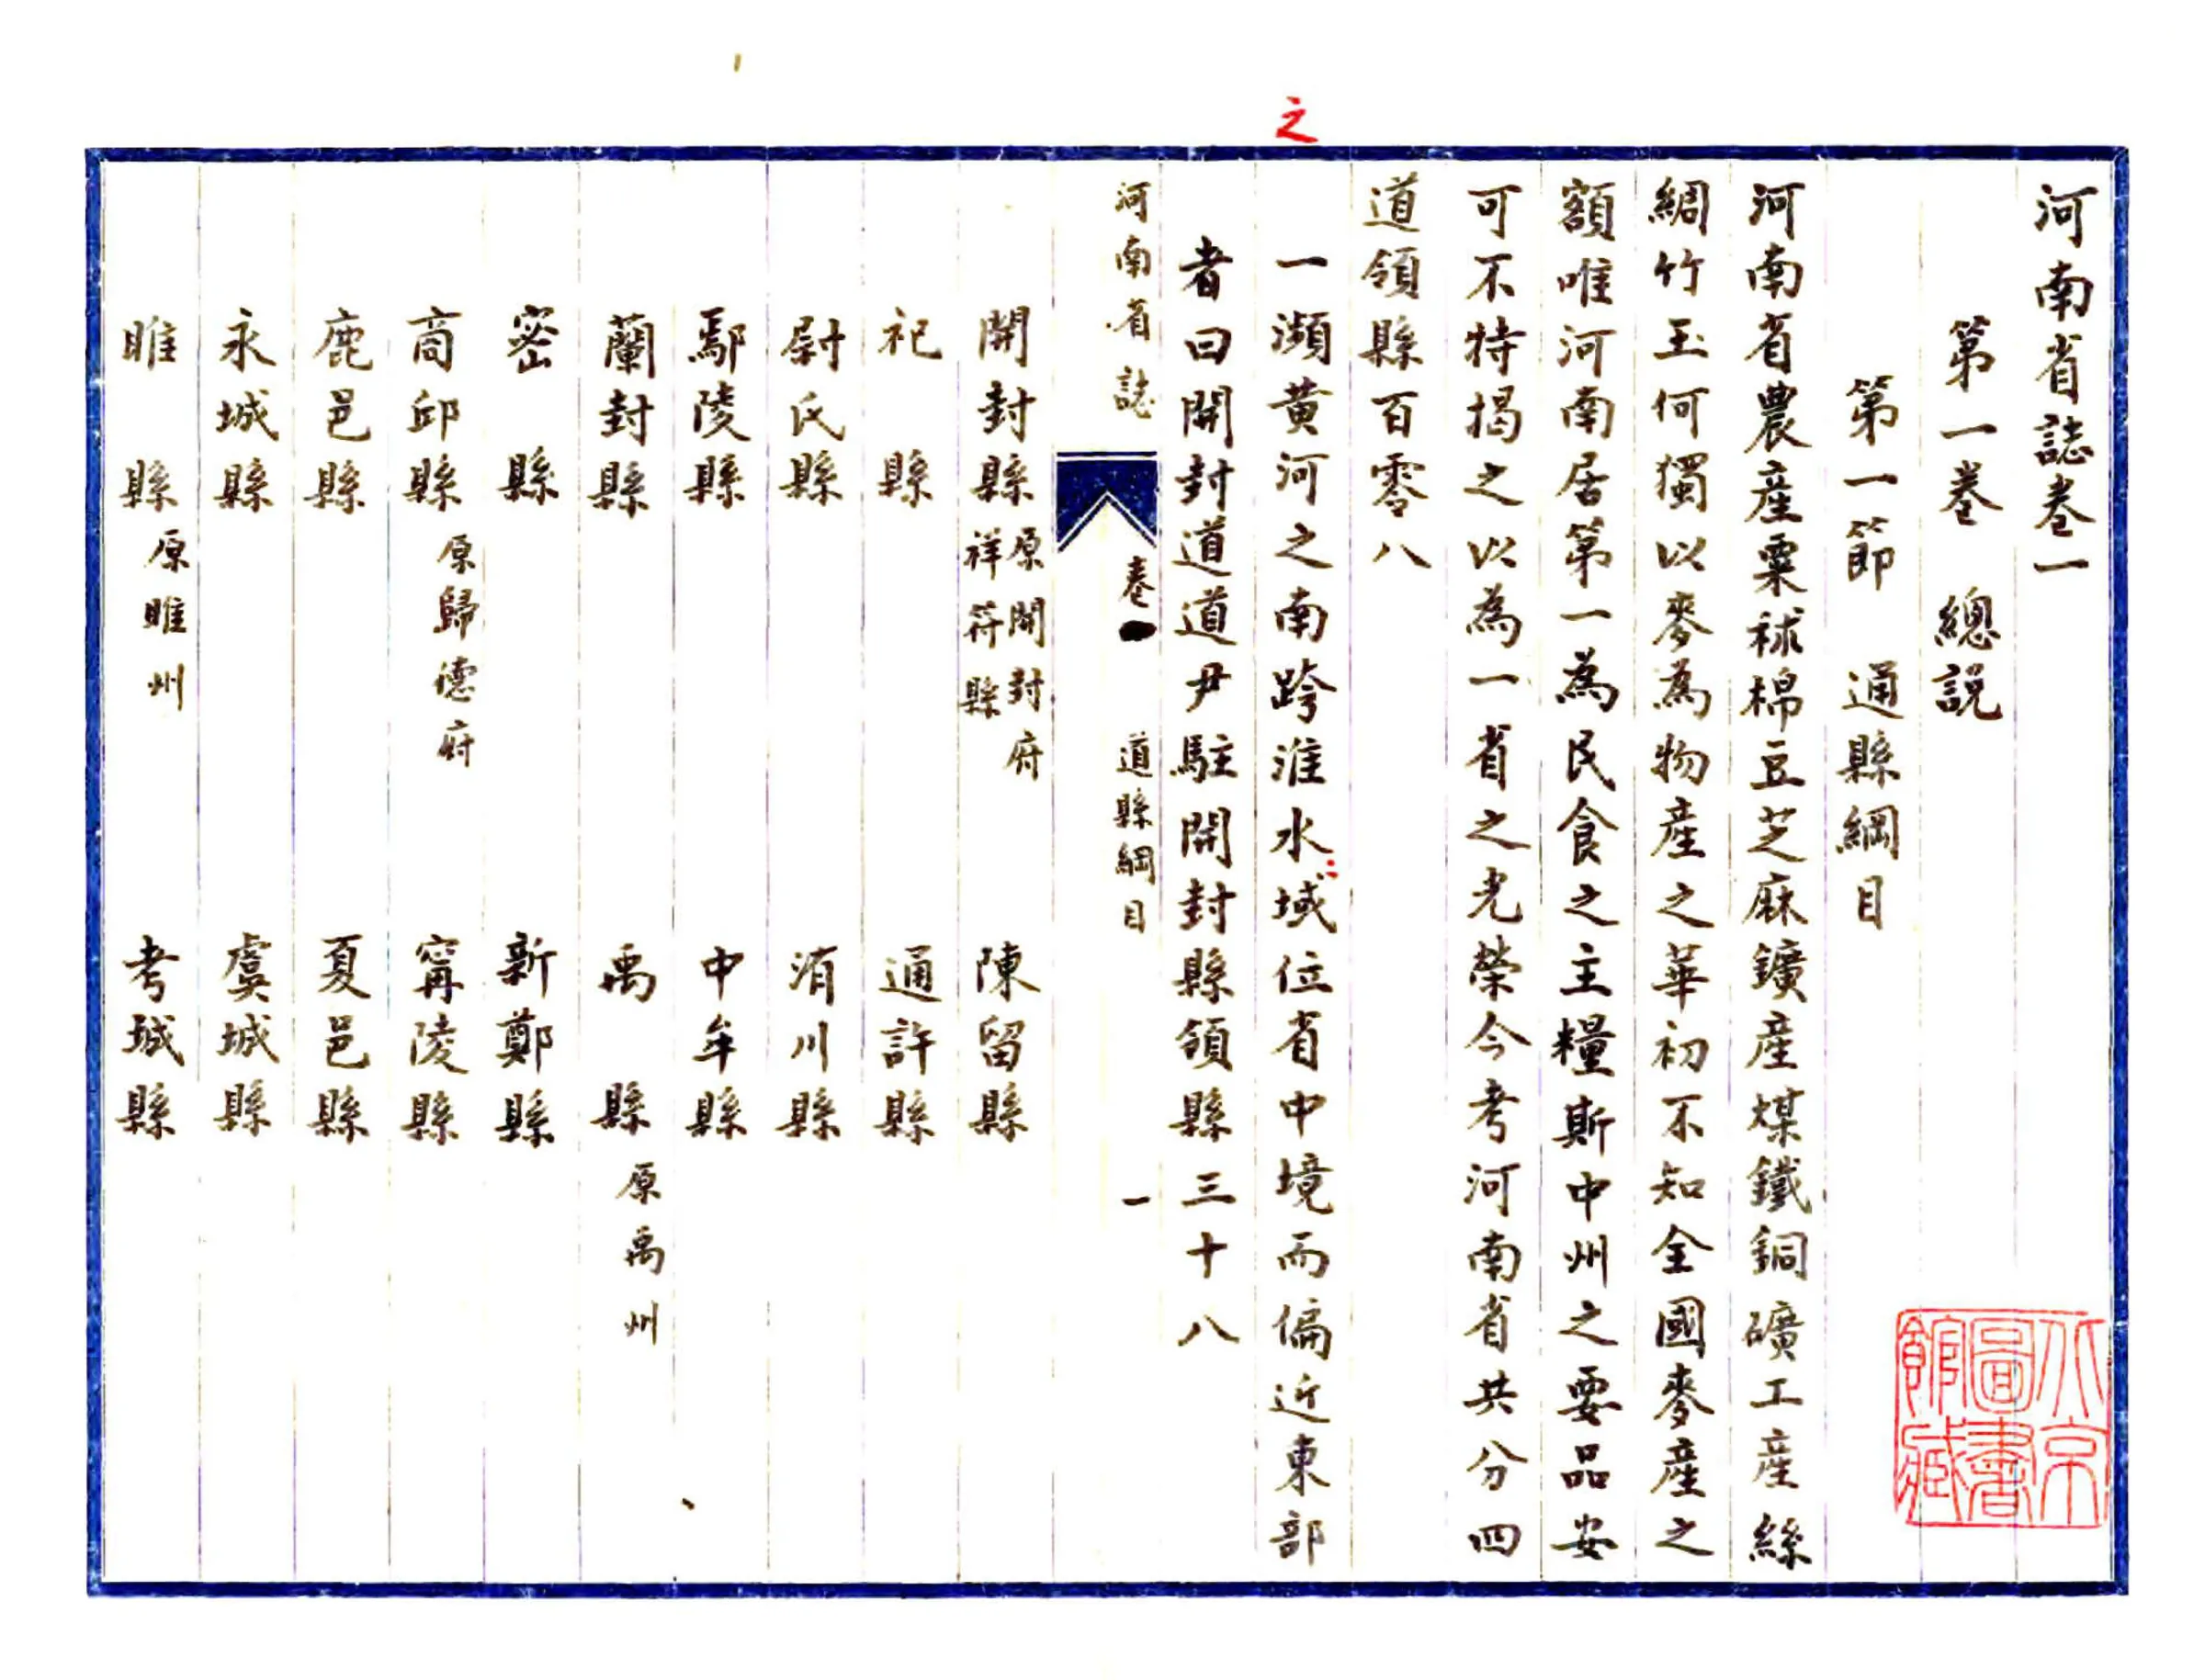 河南省誌卷一
第一卷 總説
第一節 通縣綱目
河南省農產粟秫棉豆芝麻鑛產煤鐵銅礦工產絲
綢竹玉何獨以麥為物產之華初不知全國麥產之
額唯河南居第一為民食之主糧斯中州之要品安
可不特揭之以為一省之光榮今考河南省共分四
道領縣百零八
之
一瀕黄河之南跨淮水域位省中境而偏近東部
者曰開封道道尹駐開封縣領縣三十八
河南省誌 卷一 道縣綱目 一
開封縣 原開封府祥符縣 陳留縣
祀縣 通許縣
尉氏縣 洧川縣
鄢陵縣 中牟縣
蘭封縣 禹縣 原禹州
密縣 新鄭縣
商邱縣 原歸德府 甯陵縣
鹿邑縣 夏邑縣
永城縣 虞城縣
睢縣 原睢州 考城縣
北京圖書館藏